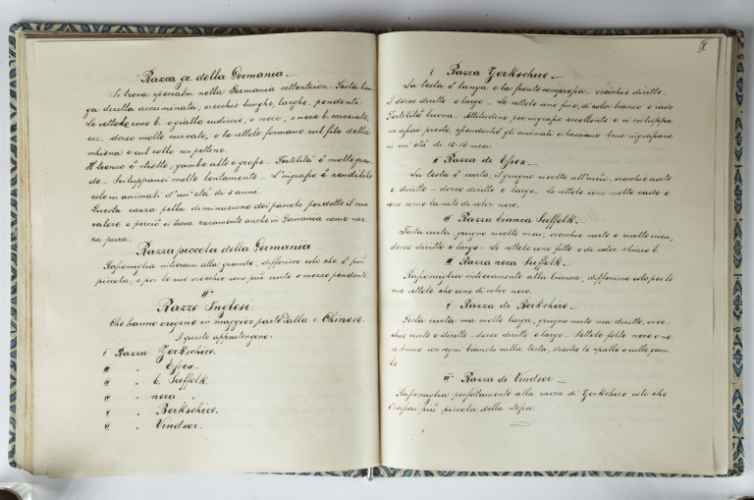 Razza gr. della Germania.
Si trova specialm. nella Germania settentrion. Testa lun-
ga diretta acuminata, orecchie lunghe, larghe, pendenti.
Le setole sono b. o gialle sudicie, o nere, o nere b. macchiate,
ecc. dorso molto curvato, e le setole formano sul filo della
schiena e sul collo un pettine.
Il tronco è stretto, gambe alte e grosse. Fertilità è molto gran-
de. Sviluppansi molto lentamente. L'ingrasso è conducibile
solo in animali d'un'età di 2 anni.
Questa razza pella diminuzione dei pascoli perdette il suo
valore e perciò si trova raramente anche in Germania come raz-
za pura.
Razza piccola della Germania
Rassomiglia interam. alla grande, differisce solo che è più
piccola, e poi le sue orecchie sono più corte e mezzo pendenti.
II°
Razze Inglesi.
Che hanno origine in maggior parte dalla r. Chinese.
A queste appartengono:
1 Razza Yorkschire.
" " Essex.
" " b. Suffolk.
" " nera "
" " Berkschire.
" " Vindsor.
1 Razza Yorkschire.
La testa è lunga e ha fronte compressa, orecchie dirette.
Il dorso diretto e largo. Le setole sono fine, di color bianco e rade
Fertilità buona. Attitudine per ingrasso eccellente e si sviluppa-
no assai presto, potendosi gli animali e bassamo bene ingrassare
in un'età di 12-16 mesi.
" Razza di Essex.
La testa è corta, il grugno rivolto all'insù, orecchie corte
e dirette - dorso diretto e largo. Le setole sono molto rade e
sono di color nero.
" Razza bianca Suffolk.
Testa corta, grugno rivolto insù, orecchie corte e
dorso diretto e largo. Le setole sono folte e di color chiaro b.
" Razza nera Suffolk.
Rassomiglia interamente alla bianca, differisce solo per le
sue setole che sono di color nero.
" Razza di Berkschire.
Testa corta ma molto larga, grugno corto ma diretto, orec-
chie corte e dirette - dorso diretto e largo. Setole folte nere o ne-
re brune con segni bianchi nella testa, dietro le spalle e sulle gam-
be
" Razza di Vindsor
Rassomiglia perfettamente alla razza di Yorkschire solo che
è assai più piccola della stessa.